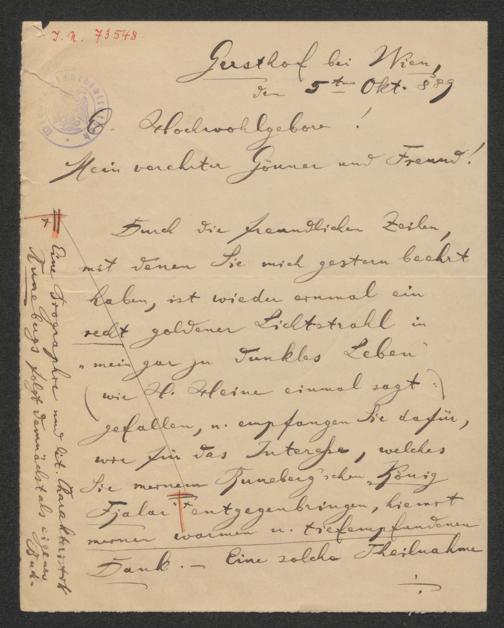 J. N. 73548
Gersthof bei Wien,
den 5ten Okt. 889
E. Hochwohlgeboren!
Mein verehrter Gönner und Freund!
Durch die freundlichen Zeilen,
mit denen Sie mich gestern beehrt
haben, ist wieder einmal ein
recht goldener Lichtstrahl in
"mein gar zu dunkles Leben"
(wie H. Heine einmal sagt)
gefallen, u. empfangen Sie dafür,
wie für das Interesse, welches
Sie meinem Runeberg'schen "König
Fjalar" entgegenbringen, hiemit
meinen warmen u. tiefempfundenen
Dank. – Eine solche Theilnahme
Eine Biographie und lit. Charakteristik
Runebergs folgt demnächst als eigenes
Buch.